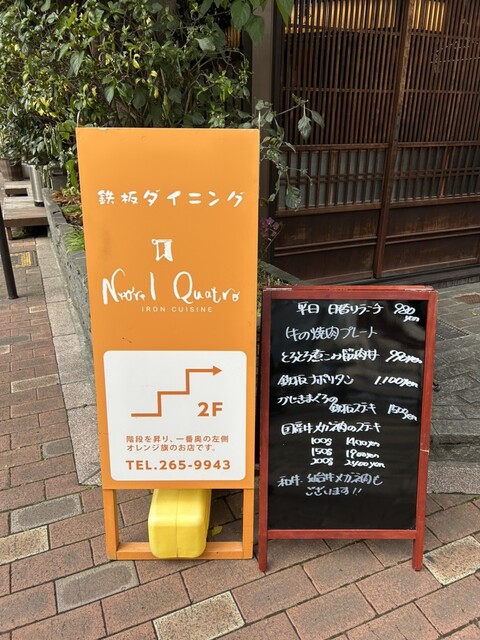 鉄板ダイニング
Quatro
IRON CUISINE
2F
階段を昇り、一番奥の左側
オレンジ旗のお店です。
TEL.265-9943
平日 日替りランチ 980yen
牛の焼肉プレート
とろとろ煮こみ筋肉丼 990yen
鉄板ナポリタン 1,100yen
かじきまぐろの
鉄板ステキ 1500yen
国産牛メガネ肉のステキ
100g 1400yen
150g 1900yen
200g 2400yen
和牛
メガネ肉も
ございます!!